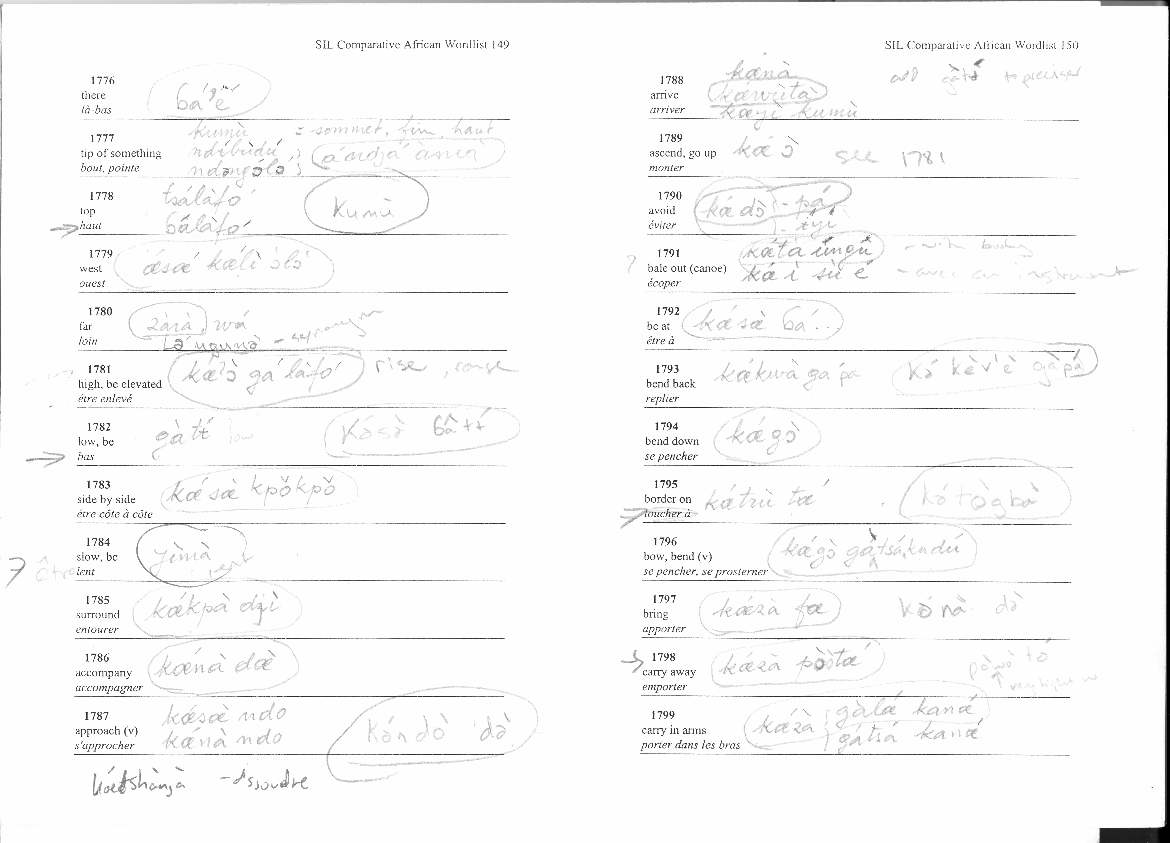 SIL Comparative African Wordlist 149
1776
there
là-bas
ɓá'ɛ̌'
1777
tip of something
bout, pointe
kumù = sommet, fin, haut
ndíbùdú
1778
top
haut
tsálàfó
ɓálàfó
kumù
1779
west
ouest
ǽsǽ kǽlì ɔ̀lɔ̀
1780
far
loin
zàrà, wá
- synonym
1781
high, be elevated
être enlevé
kǽ'ɔ̀ gá láfó rise
1782
low, be
bas
gàtɨ́ low
kɔ́sɔ̀ ɓâtɨ́
1783
side by side
être côte à côte
kǽsæ̀ kpɔ̌kpɔ̌
1784
slow, be
être lent
yìmà
1785
surround
entourer
kǽkpà dʒì
1786
accompany
accompagner
kǽnà dæ̀
1787
approach (v)
s'approcher
kǽsæ̀ ndo
kǽnà ndo
kɔ́ndɔ̀ 'dɔ̀
- dissoudre
SIL Comparative African Wordlist 150
1788
arrive
arriver
kǽnà
kǽwùtà
kǽyì kumù
add gàtɨ́ to preciser
1789
ascend, go up
monter
kǽ ɔ̀ see 1781
1790
avoid
éviter
kǽdɔ̀ - pá
1791
bale out (canoe)
écoper
kǽtà úngû - with body
kǽ ì sù é - avec un instrument
1792
be at
être à
kǽsæ̀ ɓá...
1793
bend back
replier
kǽkwà gá pá
kɔ́ kèv'è gàpá
1794
bend down
se pencher
kǽgɔ̀
1795
border on
toucher à
kǽtrù tǽ
kɔ́tɔ̀gbɔ̀
1796
bow, bend (v)
se pencher, se prosterner
kǽgɔ̀ gàtsákudú
1797
bring
apporter
kǽzà fæ
kɔ́nà dɔ̀
1798
carry away
emporter
kǽzà pɔ̀ɔ̀tǽ
pɔ̀wɔ̀ tɔ́
1799
carry in arms
porter dans les bras
kǽzà gàlá kanǽ
gàtsá kanǽ